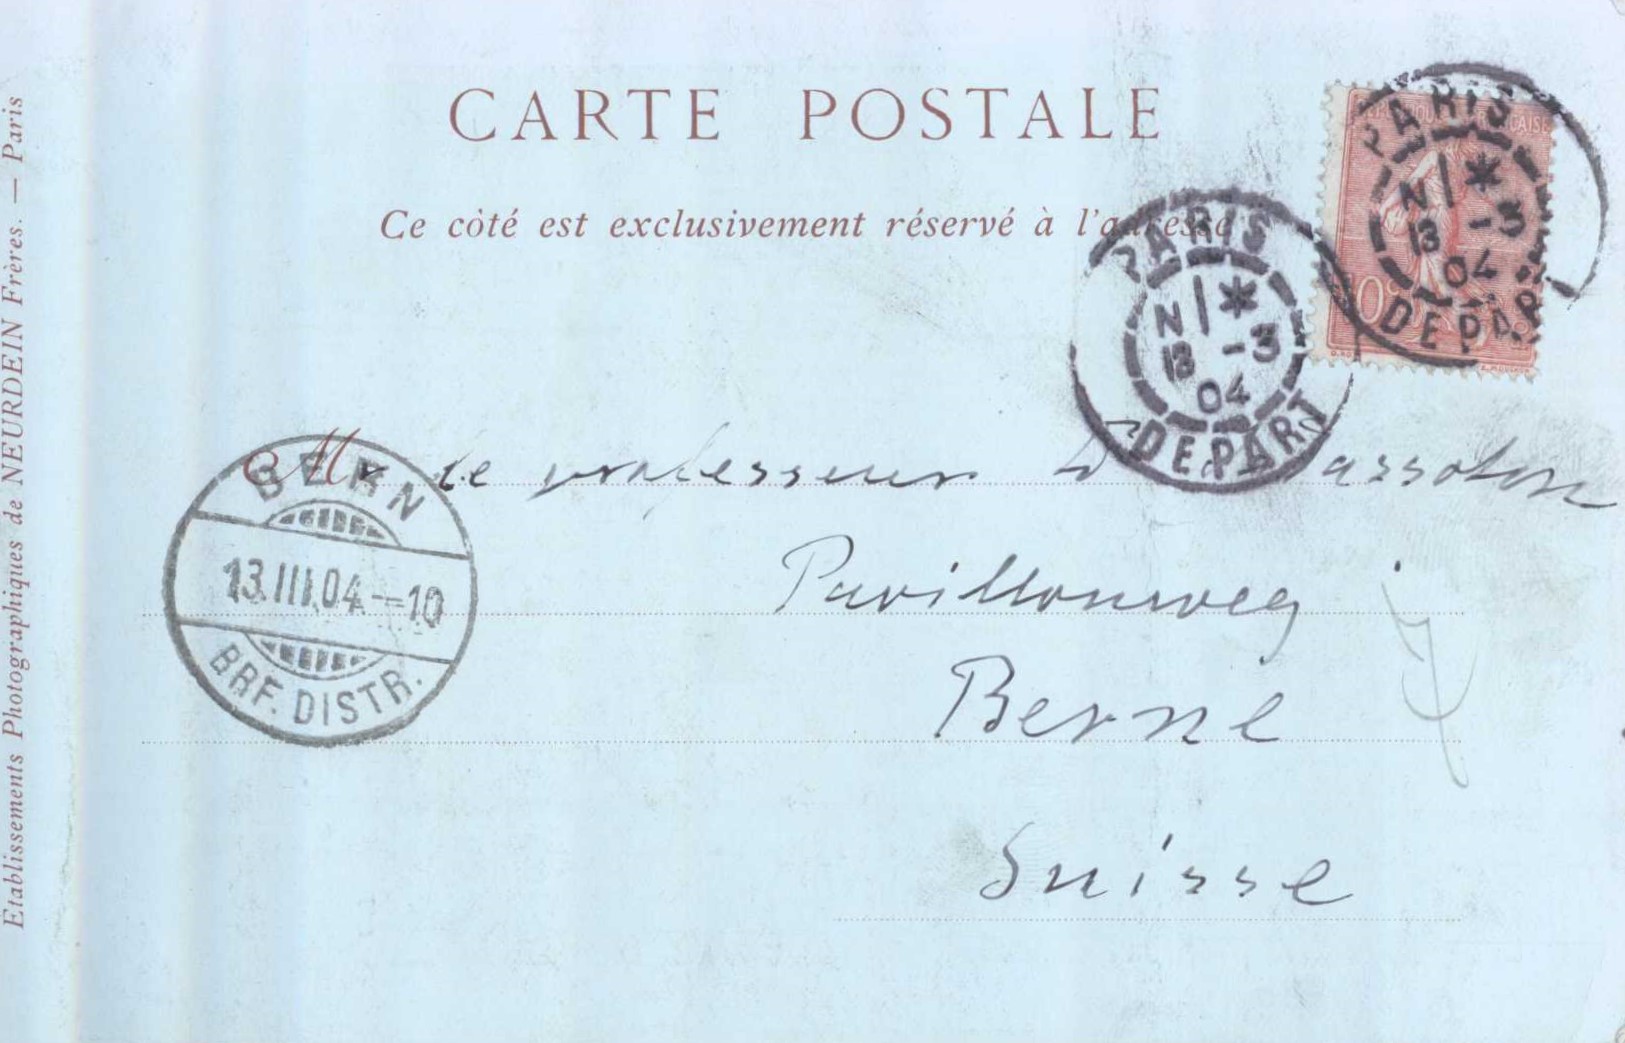 CARTE POSTALE
Ce côté est exclusivement réservé à l'adresse
PARIS
N 1 *
13 -3
04
DEPART
PARIS
N 1 *
13 -3
04
DEPART
10
BERN
13.III.04.-10
BRF. DISTR.
M r le professeur
Pavillonweg
Berne
Suisse
7
Etablissements Photographiques de NEURDEIN Frères. — Paris